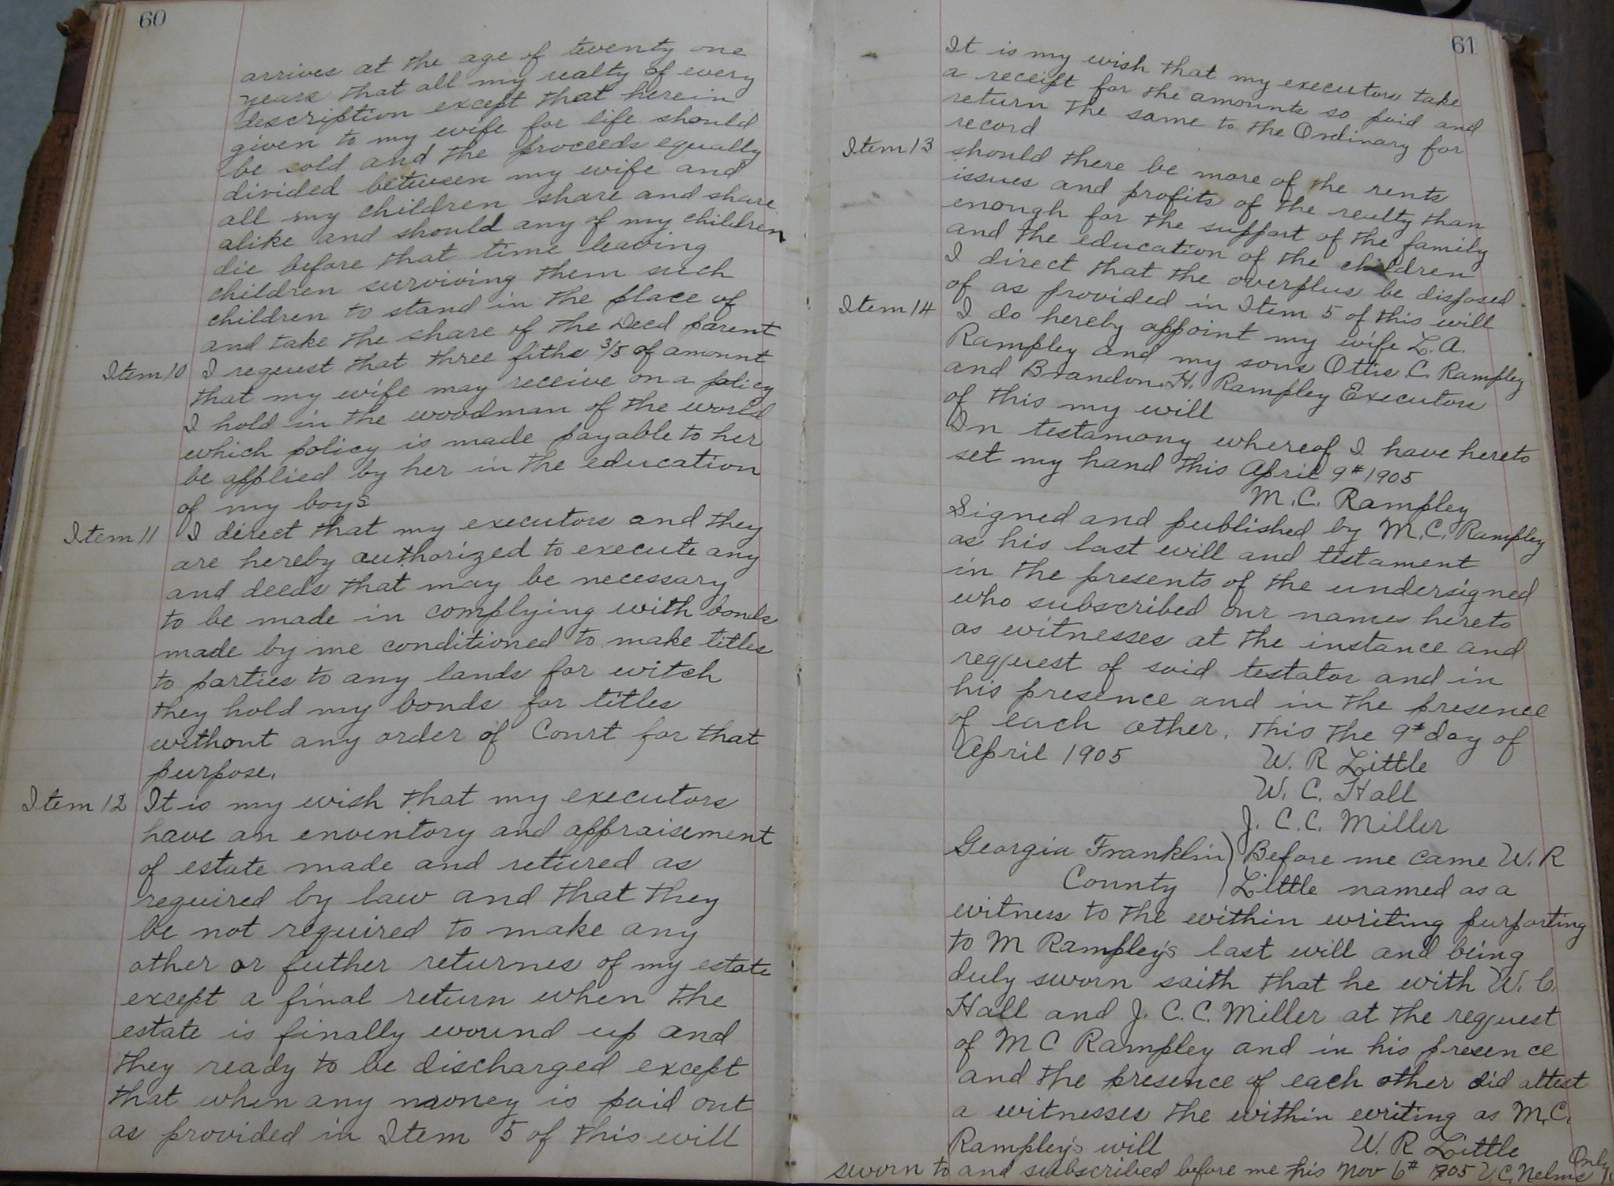 60
arrives at the age of twenty one
years that all my realty of every
description except that herein
given to my wife for life should
be sold and the proceeds equally
divided between my wife and
all my children share and share
alike and should any of my children
die before that time leaving
children surviving them such
children to stand in the place of
and take the share of the Deed parent
Item 10 I request that three fiths 3/5 of amount
that my wife may receive on a policy
I hold in the woodman of the world
which policy is made payable to her
be applied by her in the education
of my boys
Item 11 I direct that my executors and they
are hereby authorized to execute any
and deeds that may be necessary
to be made in complying with bonds
made by me conditioned to make titles
to parties to any lands for witch
they hold my bonds for titles
without any order of Court for that
purpose.
Item 12 It is my wish that my executors
have an enventory and appraisement
of estate made and retured as
required by law and that they
be not required to make any
other or futher returnes of my estate
except a final return when the
estate is finally wound up and
they ready to be discharged except
that when any money is paid out
as provided in Item 5 of this will
61
It is my wish that my executors take
a receipt for the amounts so paid and
return the same to the Ordinary for
record
Item 13 should there be more of the rents
issues and profits of the realty than
enough for the support of the family
and the education of the children
I direct that the overplus be disposed
of as provided in Item 5 of this will
Item 14 I do hereby appoint my wife L. A.
Rampley and my sons Ottis C. Rampley
and Brandon H. Rampley Executors
of this my will
In testamony whereof I have hereto
set my hand this April 9th 1905
M. C. Rampley
Signed and published by M. C. Rampley
as his last will and testament
in the presents of the undersigned
who subscribed our names hereto
as witnesses at the instance and
request of said testator and in
his presence and in the presence
of each other. this the 9th day of
April 1905 W. R Little
W. C. Hall
J. C. C. Miller
Georgia Franklin ) Before me came W. R
County ) Little named as a
witness to the within writing purporting
to M Rampley's last will and being
duly sworn saith that he with W. C.
Hall and J. C. C. Miller at the request
of M C Rampley and in his presence
and the presence of each other did attest
a witnesses the within writing as M. C.
Rampley's will W. R Little
sworn to and subscribed before me this Nov 6th 1905 Nelms